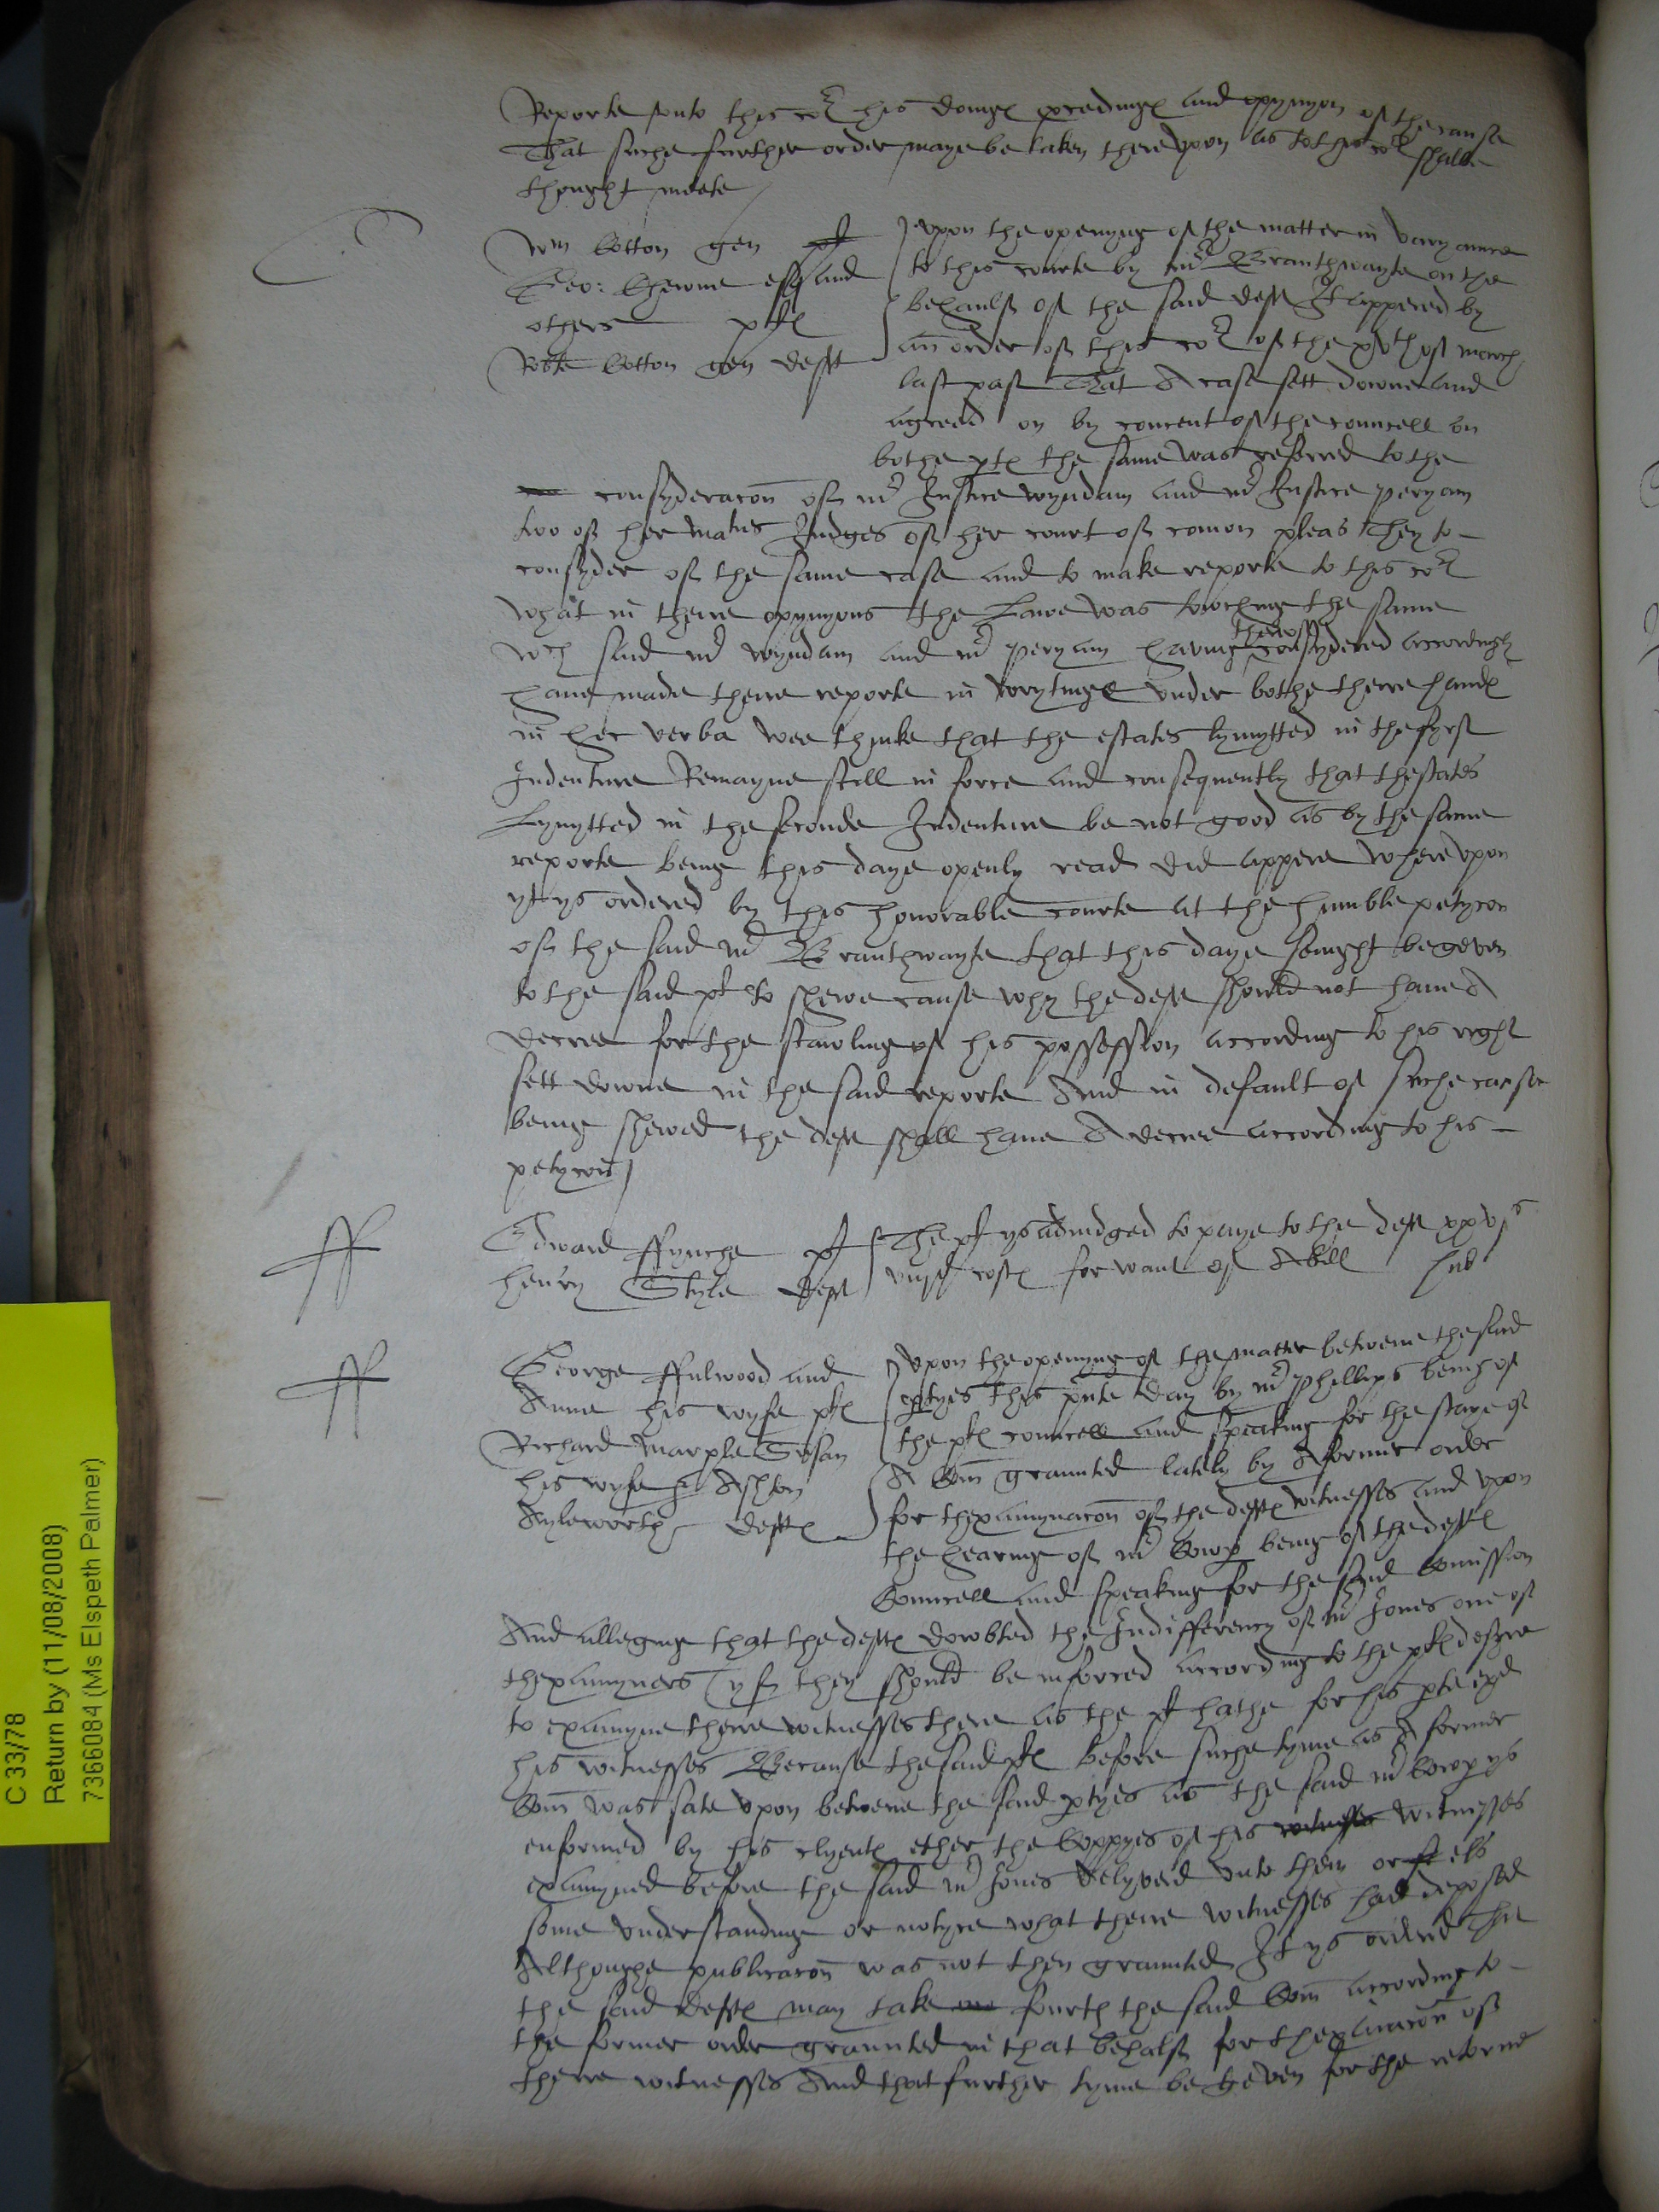 Reporte unto this cort his doinge procedinge and opynyon of the cause
That suche further order maye be taken thereupon as to this cort shalbe
thought meete
C
Wm Cotton gen plt
Geo: Chewne esq and
others pltes
Robte Cotton gen deft
upon the openyng of the matter in varyaunce
to this courte by mr Branthwayte on the
behaulf of the said deft It appered by
an order of this cort of the xvth of march
last past That A case sett downe and
agreed on by concent of the councell on
bothe ptes the same was referred to the
consyderacon of mr Justice wyndam and mr Justice peryam
two of her maties Judges of her court of comon pleas They to
consyder of the same case and to make reporte to this cort
what in theire opynyons the Lawe was towching the same
wch said mr wyndam and mr peryam having therof consydered accordingly
have made theire reporte in wrytinge under bothe theire handes
in hec verba wee thinke that the estates lymytted in the fyrst
Indenture Remayne still in force and consequently that thestates
Lymytted in the seconde Indenture be not good as by the same
reporte being this daye openly read did appere whereupon
yt ys ordered by this honorable courte at the humble petycon
of the said mr Branthwayte that this daye senight be geven
to the said plts to shewe cause why the deft should not have A
decree for the stawling of his possession according to his right
sett downe in the said reporte And in default of suche cause
being shewed the deft shall have A decree according to his
petycon
ff
Edward ffynche plt
henry Style deft
The plt ys adiudged to paye to the deft xxvjs
viijd costes for want of A bill sub
ff
George ffulwood and
Anne his wyfe pltes
Richard marple Susan
his wyfe Ashton
Ayleworth deftes
Upon the openyng of the matter betwene the said
ptyes this pnte day by mr phellips being of
the pltes councell and speaking for the staye of
A Com graunted lately by A former order
for thexamynacon of the deftes witnesses and upon
the hearing of mr Cowp being of the deftes
Councell and speaking for the said Comission
And alleging that the deftes dowbted the Indifferency of mr Jones one of
thexamyners (yf they should be inforced according to the pltes desyre
to examyne theire witnesses there as the plt hathe for his pte exd
his witnesses Because the said pltes before suche tyme as A former
Com was sate upon betwene the said ptyes as the said mr Cowp ys
enformed by his clyentes ether the Coppyes of his witnesses witnesses
examyned before the said mr Jones delyverd unto them or els
some understanding or notyce what theire witnesses had deposed
Althoughe publicacon was not then graunted It ys ordered that
the said deftes may take fourth the said Com according to
the former order graunted in that behalf for thexaiacon of
theire witnesses And that further tyme be geven for the retorne
C 33/78
Return by (11/08/2008)
7366084 (Ms Elspeth Palmer)